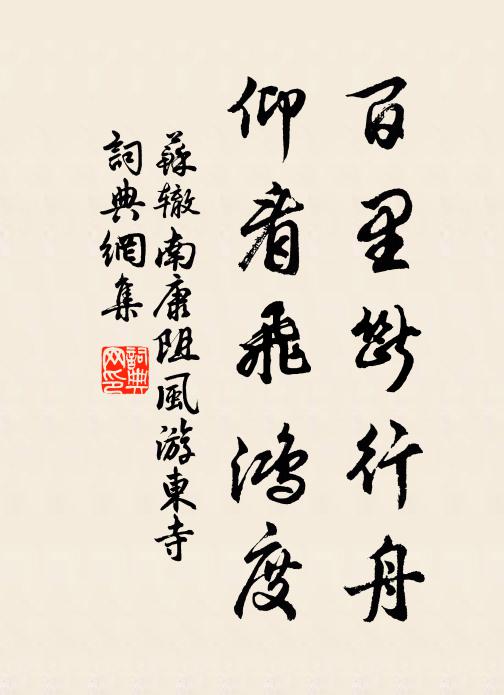 百里斷行舟
仰看飛鴻度
蘇轍南康阻風游東寺
詞典網集
詞典
网印